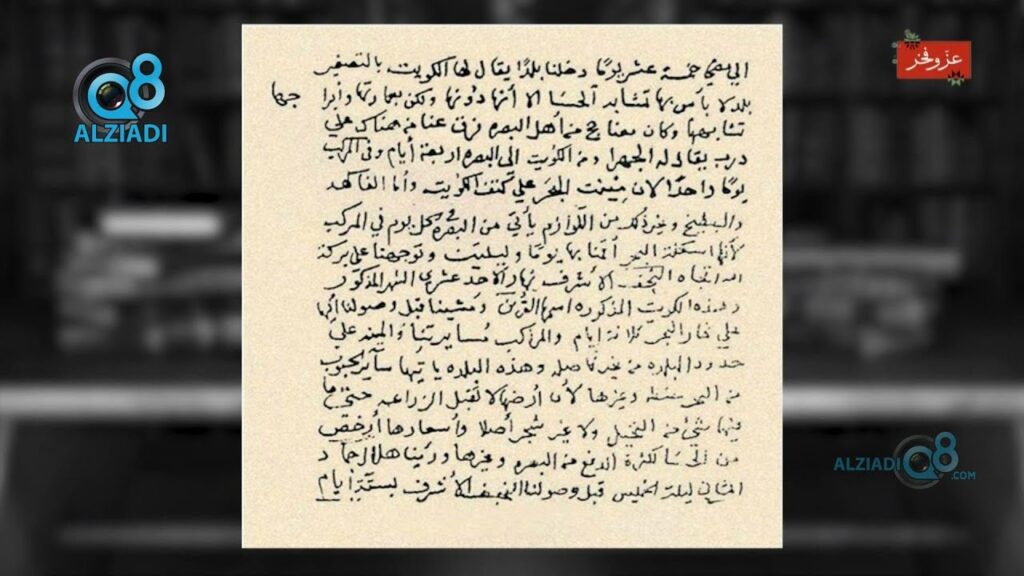 عزّوفخر
Q8
ALZIADI
الي مضي خمسة عشر يومًا دخلنا بلدًا يقال لها الكويت بالتصغير
بلد لا بأس بها تشابه الحسا الا أنها دونها ولكن بعمارتها وأبرا جها
تشابهها وكان معنا حج من أهل البصره فرق عنا من هناك علي
درب يقال له الجهرا ومن الكويت الي البصره اربعة أيام وفي المركب
يومًا واحدًا لان مينت البحر علي كتف الكويت وأما الفاكهه
والبطيخ وغير ذلك من اللوازم يأتي من البصره كل يوم في المركب
لأنها اسكلة البحر أقمنا بها يومًا وليلتين وتوجهنا علي بركة
الله تجاه النجف الأشرف نهار الأحد عشري الشهر المذكور
وهذه الكويت المذكوره اسمها القرين ومشينا قبل وصولنا إليها
علي كنار البحر ثلاثة أيام والمراكب مسايرتنا والمينه علي
حدود البلده من غير فاصله وهذه البلده يأتيها سائر الحبوب
من البحر حنطه وغيرها لأن أرضها لا تقبل الزراعه حتي ما
فيها شي من النخيل ولا غير شجر أصلا وأسعارها أرخص
من الحسا لكثرة الدفع من البصره وغيرها ورئينا هلال جماد
الثاني ليلة الخميس قبل وصولنا النجف الأشرف بستة أيام
ALZIADI Q8 .COM